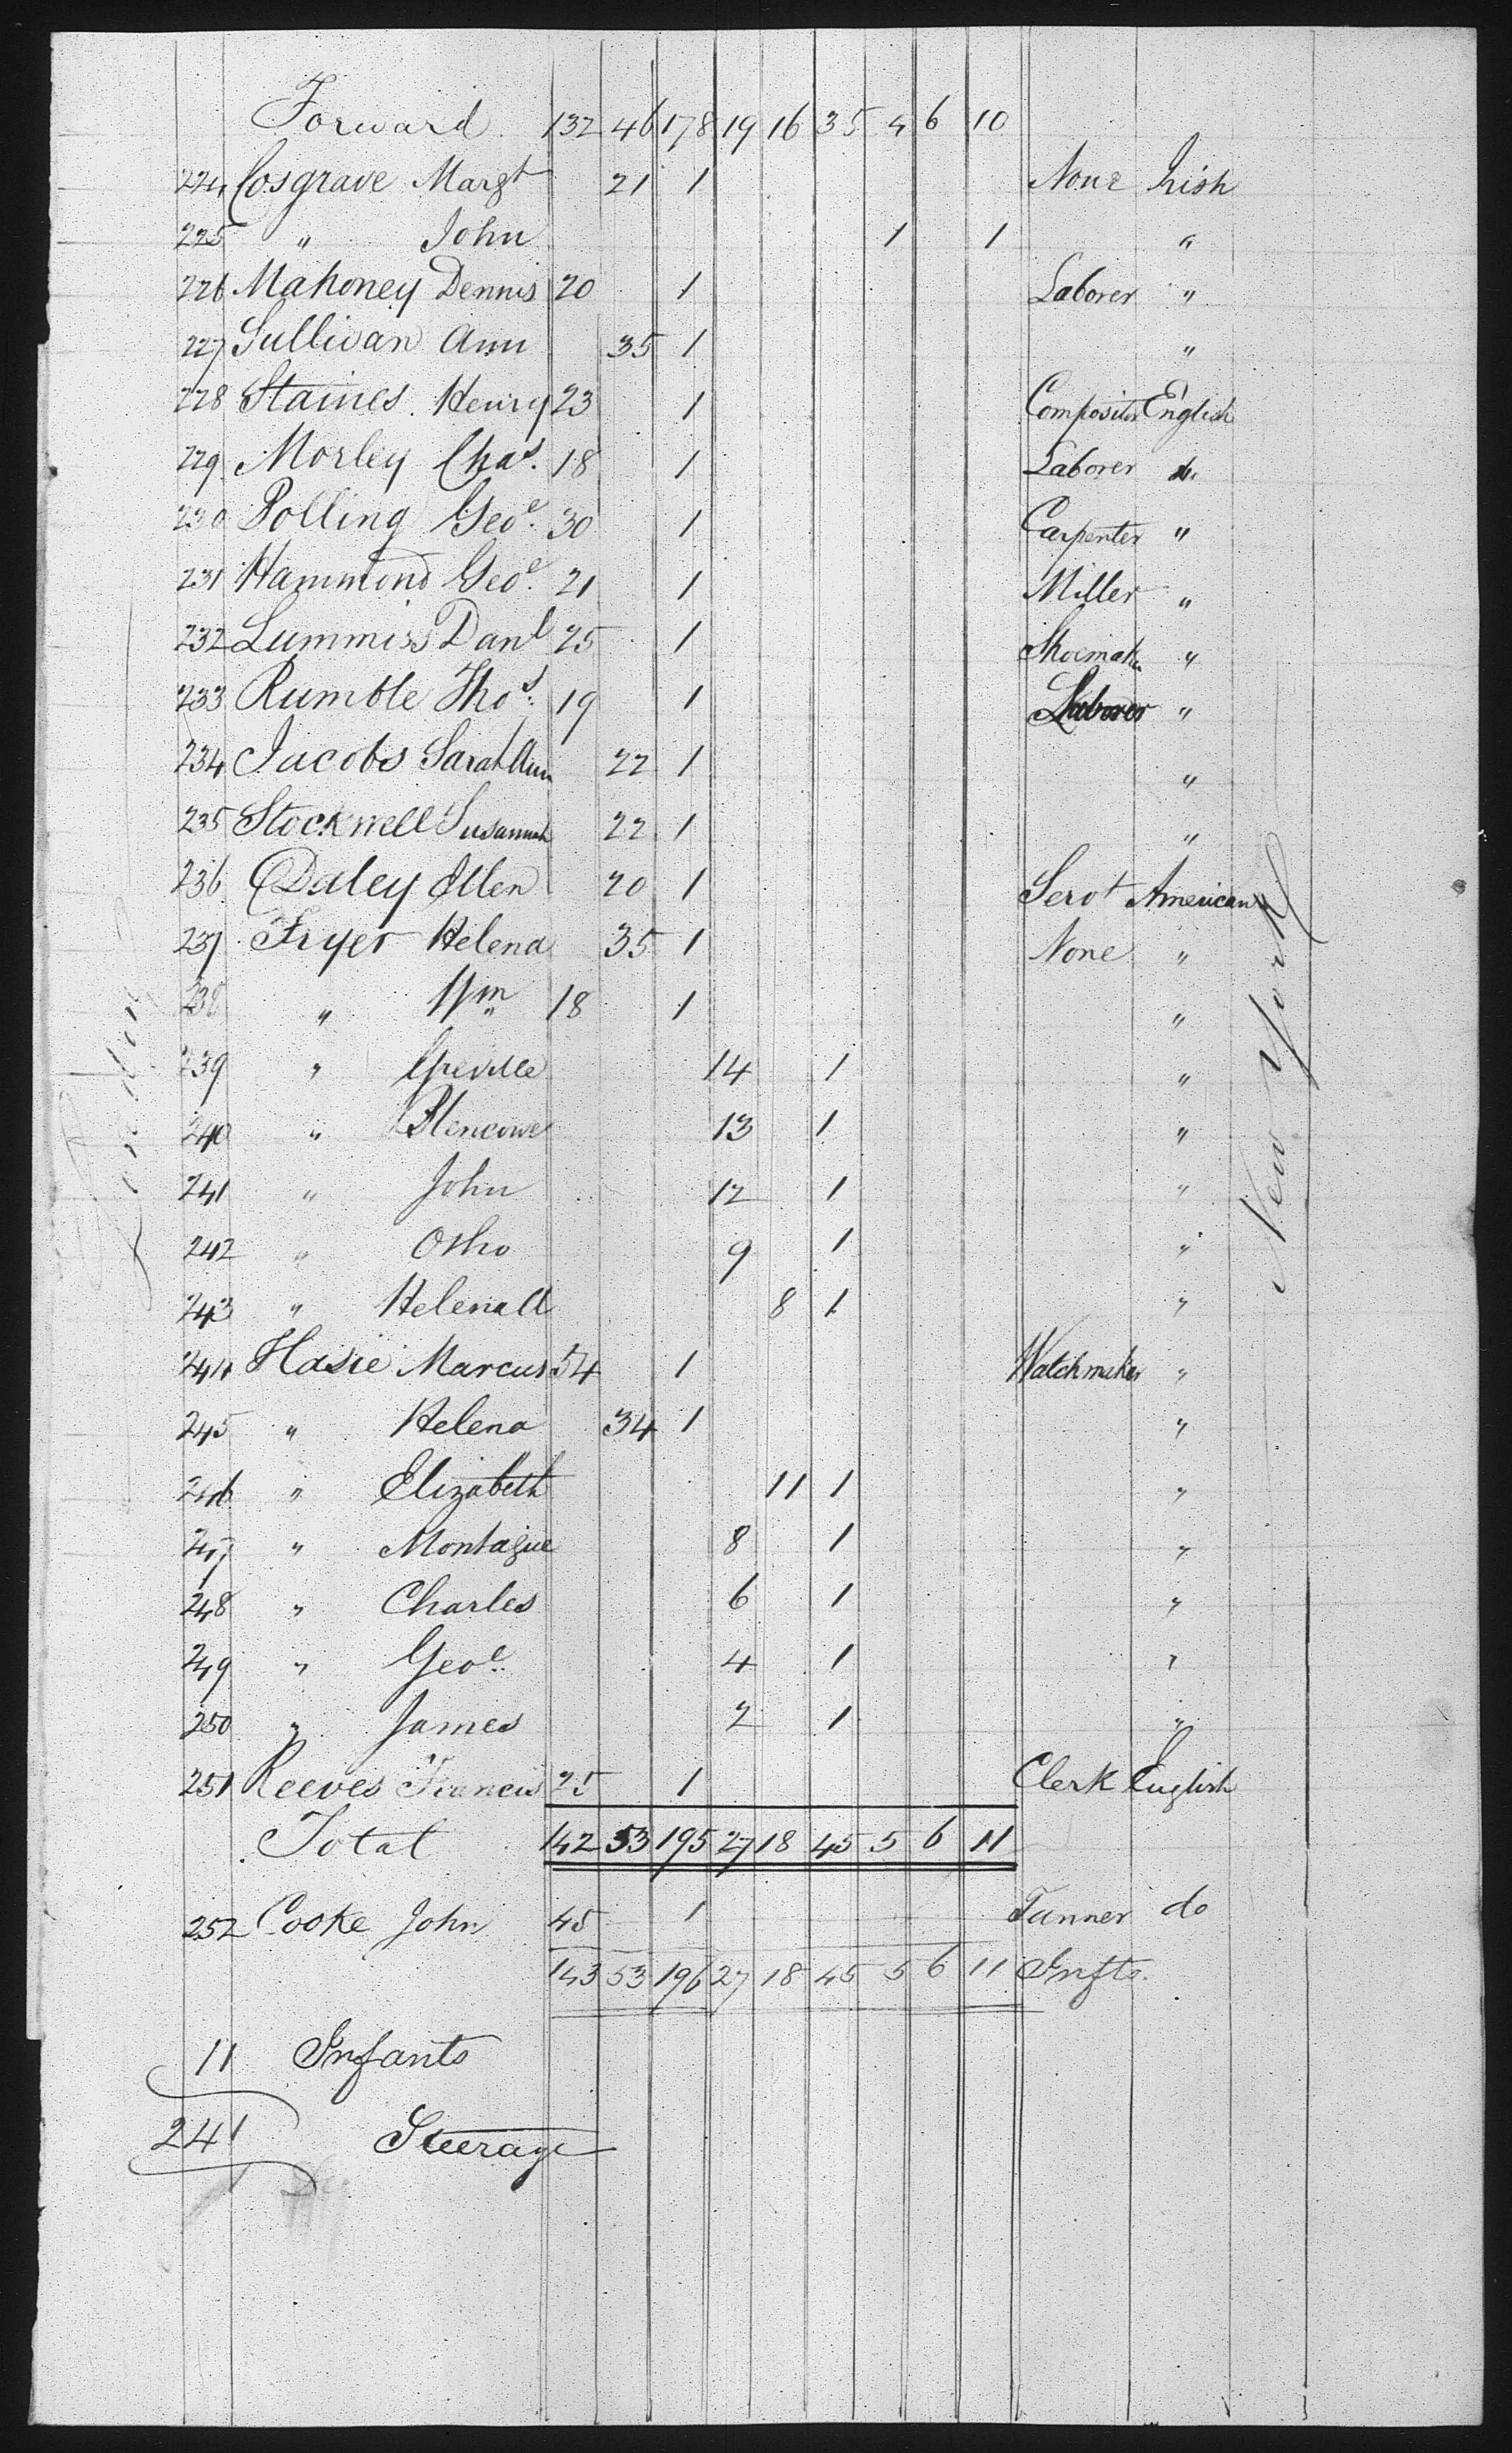 Forward 132 46 178 19 16 35 4 6 10
224 Cosgrave Margt 21 1 None Irish
225 " John 1 1 "
226 Mahoney Dennis 20 1 Laborer "
227 Sullivan Ann 35 1 "
228 Staines Henry 23 1 Compositor English
229 Morley Chas. 18 1 Laborer do
230 Polling Geoe. 30 1 Carpenter "
231 Hammond Geoe. 21 1 Miller "
232 Lummiss Danl 25 1 Shoemaker "
233 Rumble Thos. 19 1 Laborer "
234 Jacobs Sarah Ann 22 1 "
235 Stockwell Susannah 22 1 "
236 Daley Ellen 20 1 Servt American
237 Fryer Helena 35 1 None "
238 " Wm 18 1 "
239 " Greville 14 1 "
240 " Blencowe 13 1 "
241 " John 12 1 "
242 " Otho 9 1 "
243 " Helena A 8 1 "
244 Hasie Marcus 54 1 Watchmaker "
245 " Helena 34 1 "
246 " Elizabeth 11 1 "
247 " Montague 8 1 "
248 " Charles 6 1 "
249 " Geoe. 4 1 "
250 " James 2 1 "
251 Reeves Francis 25 1 Clerk English
Total 142 53 195 27 18 45 5 6 11
252 Cooke John 45 1 Tanner do
143 53 196 27 18 45 5 6 11 Infts.
11 Infants
241 Steerage
London
New York